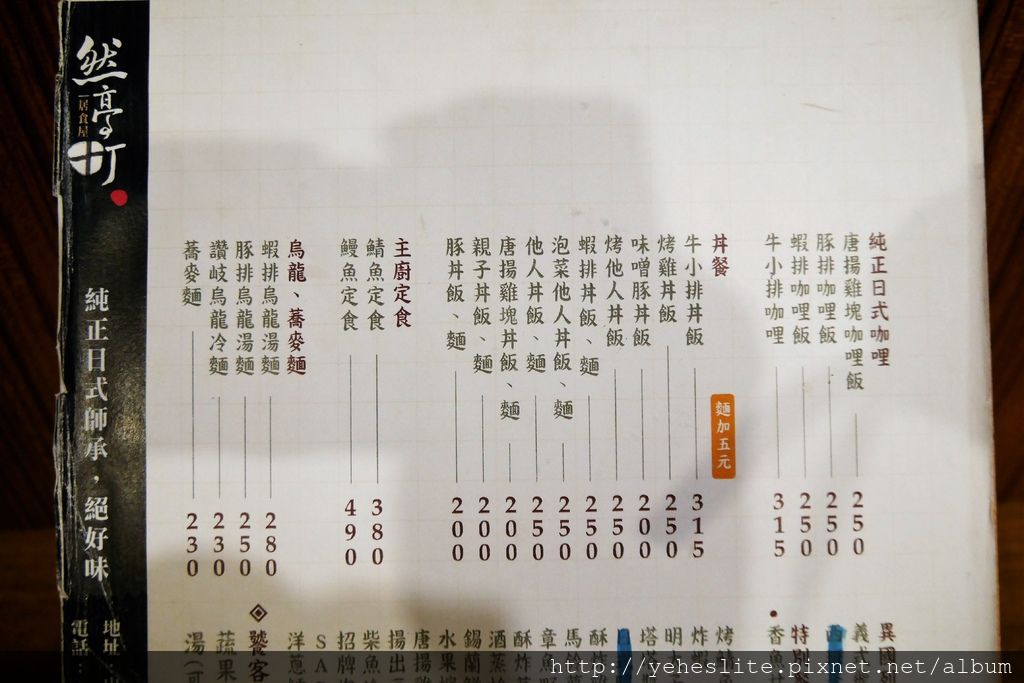 純正日式咖哩
唐揚雞塊咖哩飯 250
豚排咖哩飯 250
蝦排咖哩飯 250
牛小排咖哩 315
丼餐
麵加五元
牛小排丼飯 315
烤雞丼飯 250
味噌豚丼飯 200
烤他人丼飯 250
蝦排丼飯、麵 250
泡菜他人丼飯、麵 250
他人丼飯、麵 250
唐揚雞塊丼飯、麵 200
親子丼飯、麵 200
豚丼飯、麵 200
主廚定食
鯖魚定食 380
鰻魚定食 490
烏龍、蕎麥麵
蝦排烏龍湯麵 280
豚排烏龍湯麵 250
讚岐烏龍冷麵 230
蕎麥麵 230
然亭町
居食屋
純正日式師承，絕好味
地址
電話：
異國
義式
特別
香魚
烤
炸蝦
明太
塔塔
酥炸
馬
章魚
酥炸
酒蒸
錫蘭
水果
唐揚
揚出
柴魚
招牌
SA
洋蔥
饕客
蔬果
湯(可
http://yeheslite.pixnet.net/album